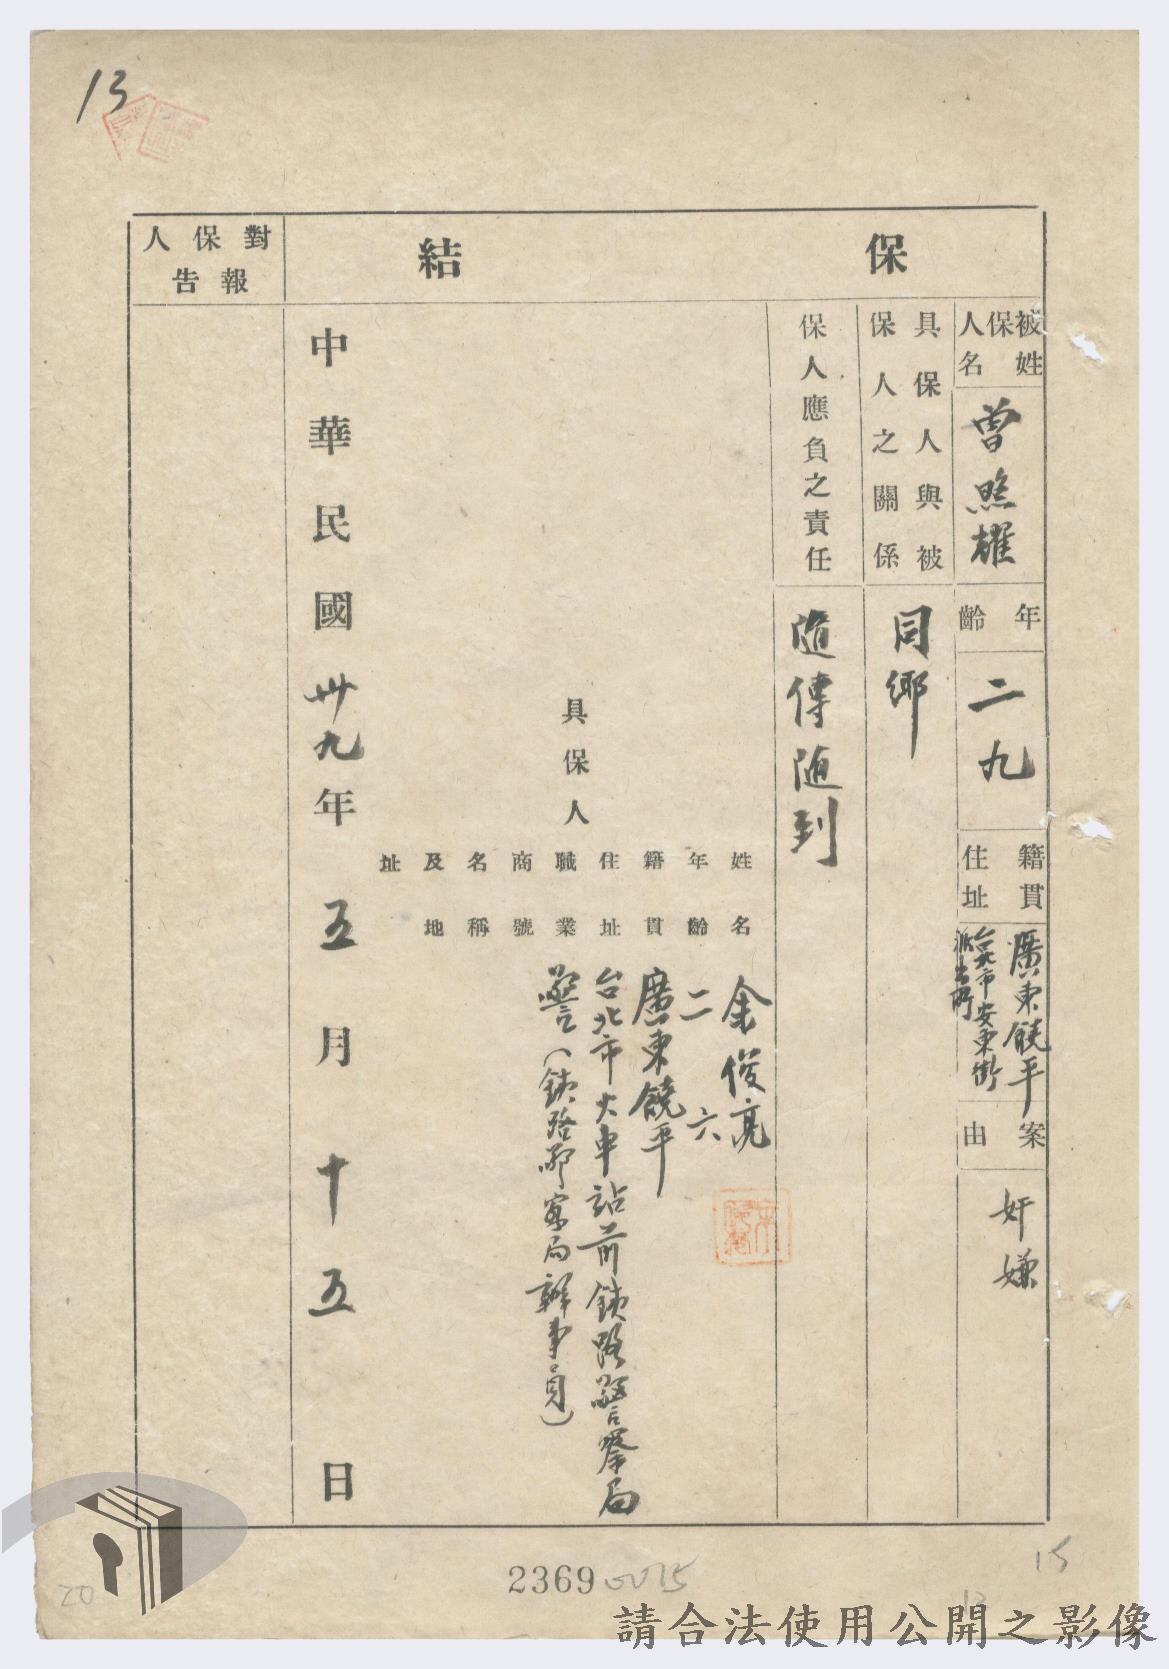 13
保結
被保人姓名
曾照耀
年齡
二九
籍貫住址
廣東饒平
台北市安東街
派出所
案由
奸嫌
具保人與被
保人之關係
同鄉
保人應負之責任
隨傳隨到
具保人
姓名
余俊亮
年齡
二六
籍貫
廣東饒平
住址
台北市大車站前鐵路警察局
職業
警(鐵路警察局辦事員)
商號
名稱
及地
址
中華民國卅九年五月十五日
對保人
報告
2369
0015
15
13
20
請合法使用公開之影像